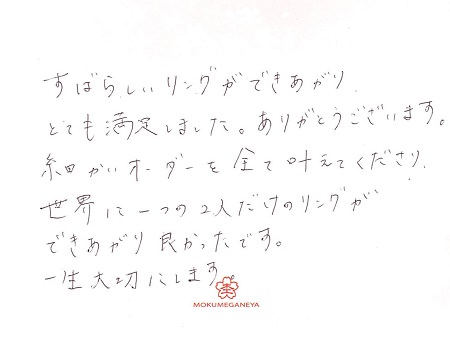 すばらしいリングができあがり、
とても満足しました。ありがとうございます。
細かいオーダーを全て叶えてくださり、
世界に一つの2人だけのリングが
できあがり良かったです。
一生大切にします
MOKUMEGANEYA